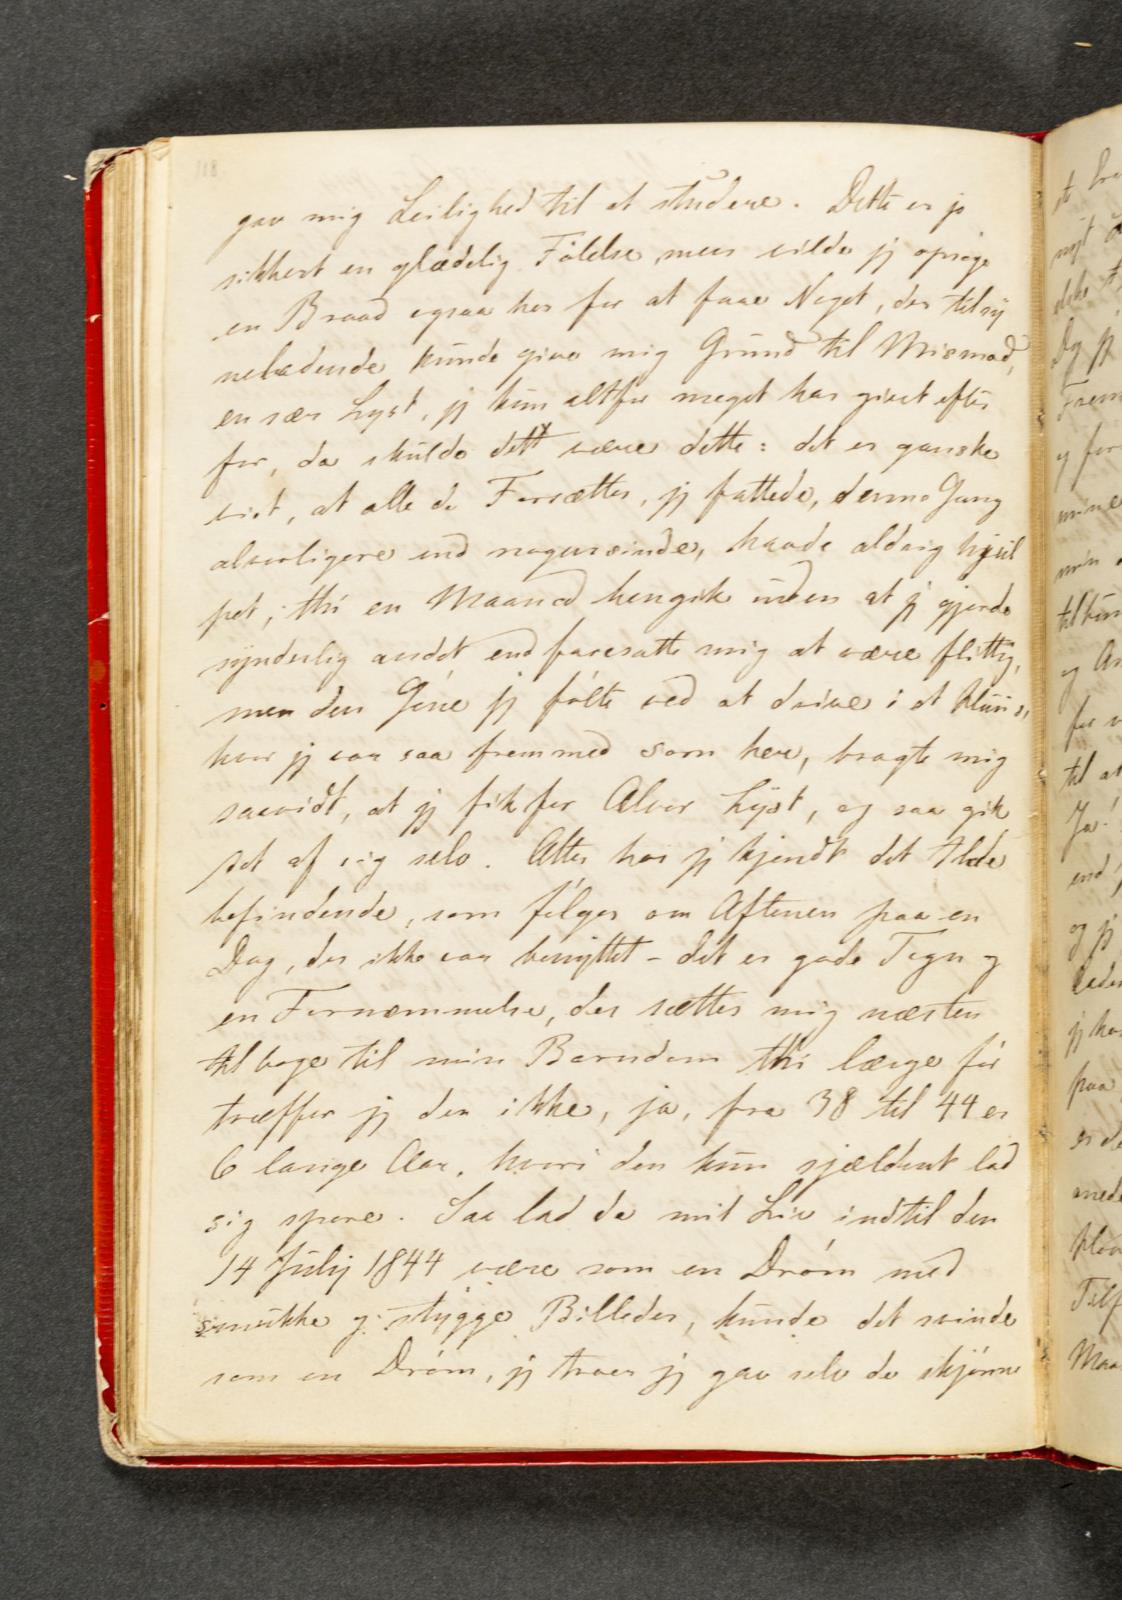 118
gav mig Leilighed til at studere. Dette er jo
sikkert en glædelig Følelse, men vilde jeg opsøge
en Braad ogsaa her for at faae Noget, der tilsy
neladende kunde give mig Grund til Mismod,
en sær Lyst, jeg kun altfor meget har givet efter
for, da skulde dett være dette: det er ganske
vist, at alle de Forsætter, jeg fattede, denne Gang
alvorligere end nogensinde, havde aldrig hjul
pet, thi en Maaned hengik uden at jeg gjorde
synderlig andet end foresatte mig at være flittig,
men den Géne jeg følte ved at drive i et Huus,
hvor jeg var saa fremmed som her, bragte mig
saavidt, at jeg fik for Alvor Lyst, og saa gik
det af sig selv. Atter har jeg kjendt det Ilde
befindende, som følger om Aftenen paa en
Dag, der ikke var benyttet – det er gode Tegn og
en Fornemmelse, der sætter mig næsten
tilbage til min Barndom thi længe før
træffer jeg den ikke, ja, fra 38 til 44 er
6 lange Aar, hvori den kun sjældent lod
sig spore. Saa lad da mit Liv indtil den
14 July 1844 være som en Drøm med
smukke og stygge Billeder, kunde det svinde
som en Drøm, jeg troer jeg gav selv de skjønne